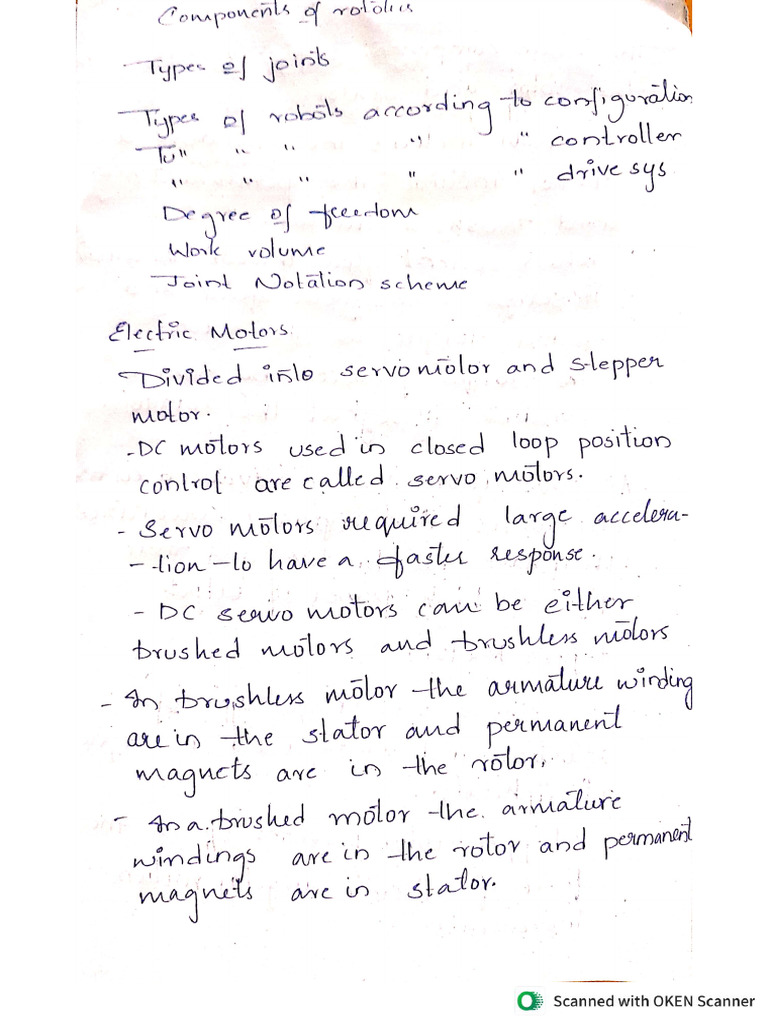 Components of robotics
Types of joints
Types of robots according to configuration
Tu" " " " " controller
" " " " " drive sys
Degree of freedom
Work volume
Joint Notation scheme
Electric Motors
Divided into servomotor and stepper
motor.
- DC motors used in closed loop position
control are called servo motors.
- Servo motors required large accelera-
-tion to have a faster response.
- DC servo motors can be either
brushed motors and brushless motors
- In brushless motor the armature winding
are in the stator and permanent
magnets are in the rotor.
- In a brushed motor the armature
windings are in the rotor and permanent
magnets are in stator.
Scanned with OKEN Scanner